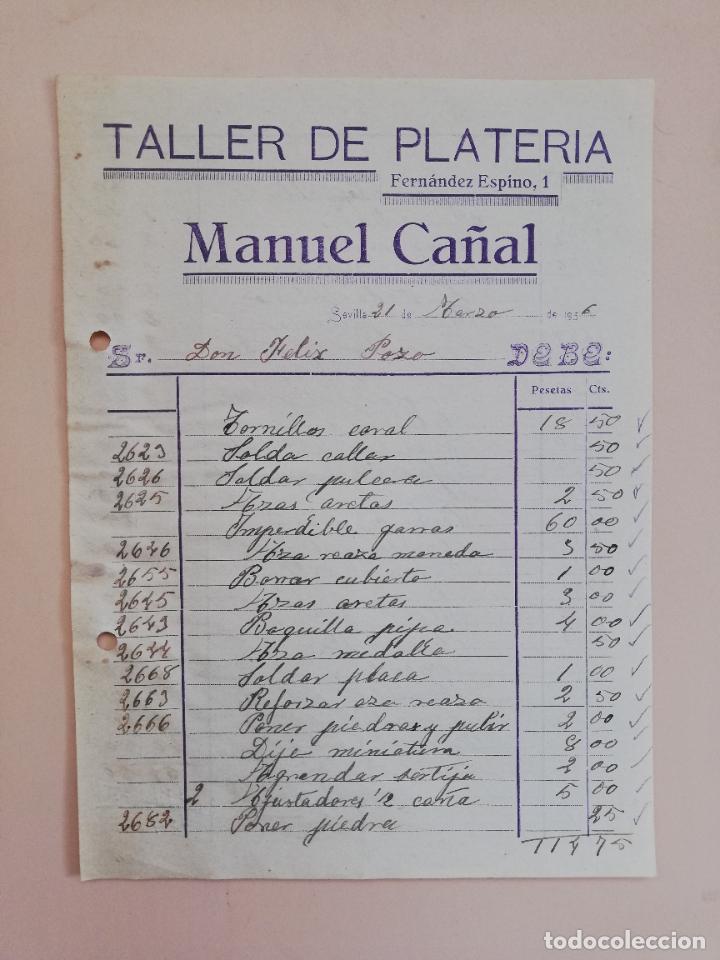 TALLER DE PLATERIA
Fernández Espino, 1
Manuel Cañal
Sevilla 21 de Marzo de 1936
Sr. Don Felix Pozo DEBE:
Pesetas Cts.
Tornillos coral 18 50
2623 Solda collar 50
2626 Soldar pulcera 50
2625 Azas aretas 2 50
Imperdible garras 60 00
2646 Aza reaza moneda 3 50
2655 Borrar cubierto 1 00
2645 Azas aretas 3 00
2643 Boquilla pipa 4 00
2644 Aza medalla 50
2668 Soldar placa 1 00
2663 Reforzar aza reaza 2 50
2666 Poner piedras y pulir 2 00
Dije miniatura 8 00
Agrandar sortija 2 00
2 Ajustadores 5 00
2682 Poner piedra 25
114 75
todocoleccion